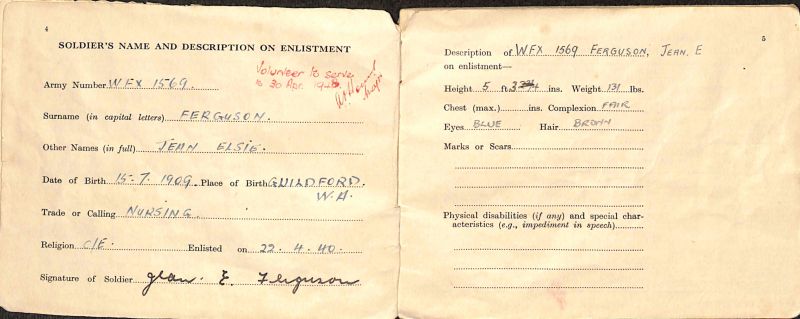 4
SOLDIER'S NAME AND DESCRIPTION ON ENLISTMENT
Volunteer to serve
to 30 Apr.
Army Number WFX 1569.
Surname (in capital letters) FERGUSON.
Other Names (in full) JEAN ELSIE.
Date of Birth 15.7.1909. Place of Birth GUILDFORD.
W.A.
Trade or Calling NURSING.
Religion C/E. Enlisted on 22.4.40.
Signature of Soldier Jean E. Ferguson
5
Description of WFX 1569 FERGUSON, JEAN. E
on enlistment—
Height 5 ft. 3 ins. Weight 131 lbs.
Chest (max.) ins. Complexion FAIR
Eyes BLUE Hair BROWN
Marks or Scars
Physical disabilities (if any) and special char-
acteristics (e.g., impediment in speech)